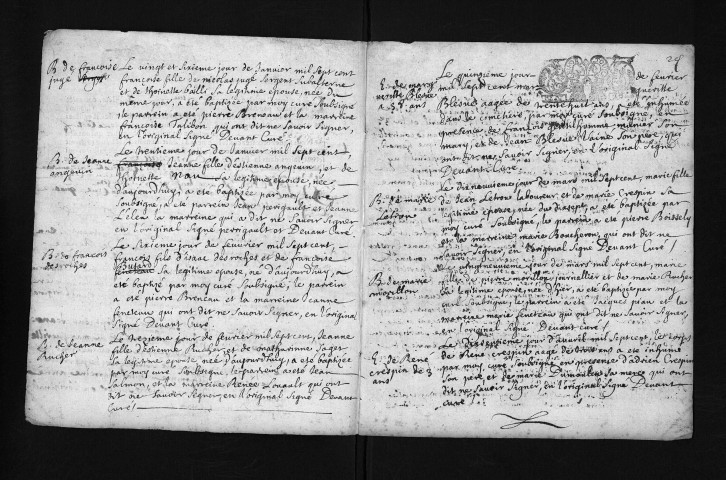 B. de françoise
jugé
Le vingt et sixieme jour de Janvier mil Sept cent
françoise fille de nicolas jugé Sergent Subalterne
et de Thoinette bailli Sa legitime epouse, née du
mesme jour, a eté baptizée par moy curé Soubsigné
le parrin a eté pierre Breneau et la marrine
françoise Talibon qui ont dit ne Savoir Signer,
en l'original Signé Devant Curé.
B. de Jeanne
angevin
Le trentieme jour de Janvier mil Sept cent
Jeanne fille d'estienne angevin, et de
Thoinette Sa legitime epouse, née
d'aujourd'huy, a eté baptizée par moy curé
Soubsigné, a eté parrein Jean perrigault et Jeanne
la marreine qui a dit ne Savoir Signer
en l'original Signé perrigault et Devant Curé.
B. de francois
desroches
Le Sixieme jour de fevrier mil Sept cent,
francois fils d'isaac desroches et de francoise
Sa legitime epouse, né d'aujourd'huy, a
eté baptizé par moy curé Soubsigné, le parrein
a eté pierre Breneau et la marreine Jeanne
feneteau qui ont dit ne Savoir Signer, en l'original
Signé Devant Curé.
B. de Jeanne
Rucher
Le treizieme jour de fevrier mil Sept cent, Jeanne
fille d'estienne Rucher, et de Catharinne Sagot
Sa legitime epouse, née d'aujourd'huy, a eté baptizée
par moy curé Soubsigné, le parrein a eté Jean
Salmon, et la marreine Renée Louault qui ont
dit ne Savoir Signer, en l'original Signé Devant
Curé.
E. de
Blesné
38 ans
Le quinzieme jour de fevrier
mil Sept cent
Blesné aagée de trente huit ans, a eté inhumée
dans le cimetiere, par moy curé Soubsigné, en
presence de francois Son
mary, et de Jean Blesné Son pere qui
ont dit ne Savoir Signer, en l'original Signé
Devant Curé.
B. de marie
Letron
Le dixneuvieme jour de mars mil Sept cent, marie fille
de Jean Letron laboureur, et de marie Crespin Sa
legitime epouse, née du jour a eté baptizée par
moy curé Soubsigné, le parrein a eté pierre Boissely
et la marreine marie Boucheron qui ont dit ne
Savoir Signer, en l'original Signé Devant Curé.
B. de marie
morillon
Le vingt neuvieme jour de mars mil Sept cent, marie
fille de pierre morillon et de marie Rucher
Sa legitime epouse, née d'hier, a eté baptizée par moy
curé Soubsigné, le parrein a eté Jacques pian et la
marreine marie feneteau qui ont dit ne Savoir Signer,
en l'original Signé Devant Curé.
E. de René
crespin de 3
ans
Le Dixseptieme jour d'avril mil Sept cent, le corps
de René crespin aagé de trois ans a eté inhumé
par moy curé Soubsigné en presence d'adrien Crespin
Son pere et de marie Sa mere qui ont
dit ne Savoir Signer, en l'original Signé Devant
curé